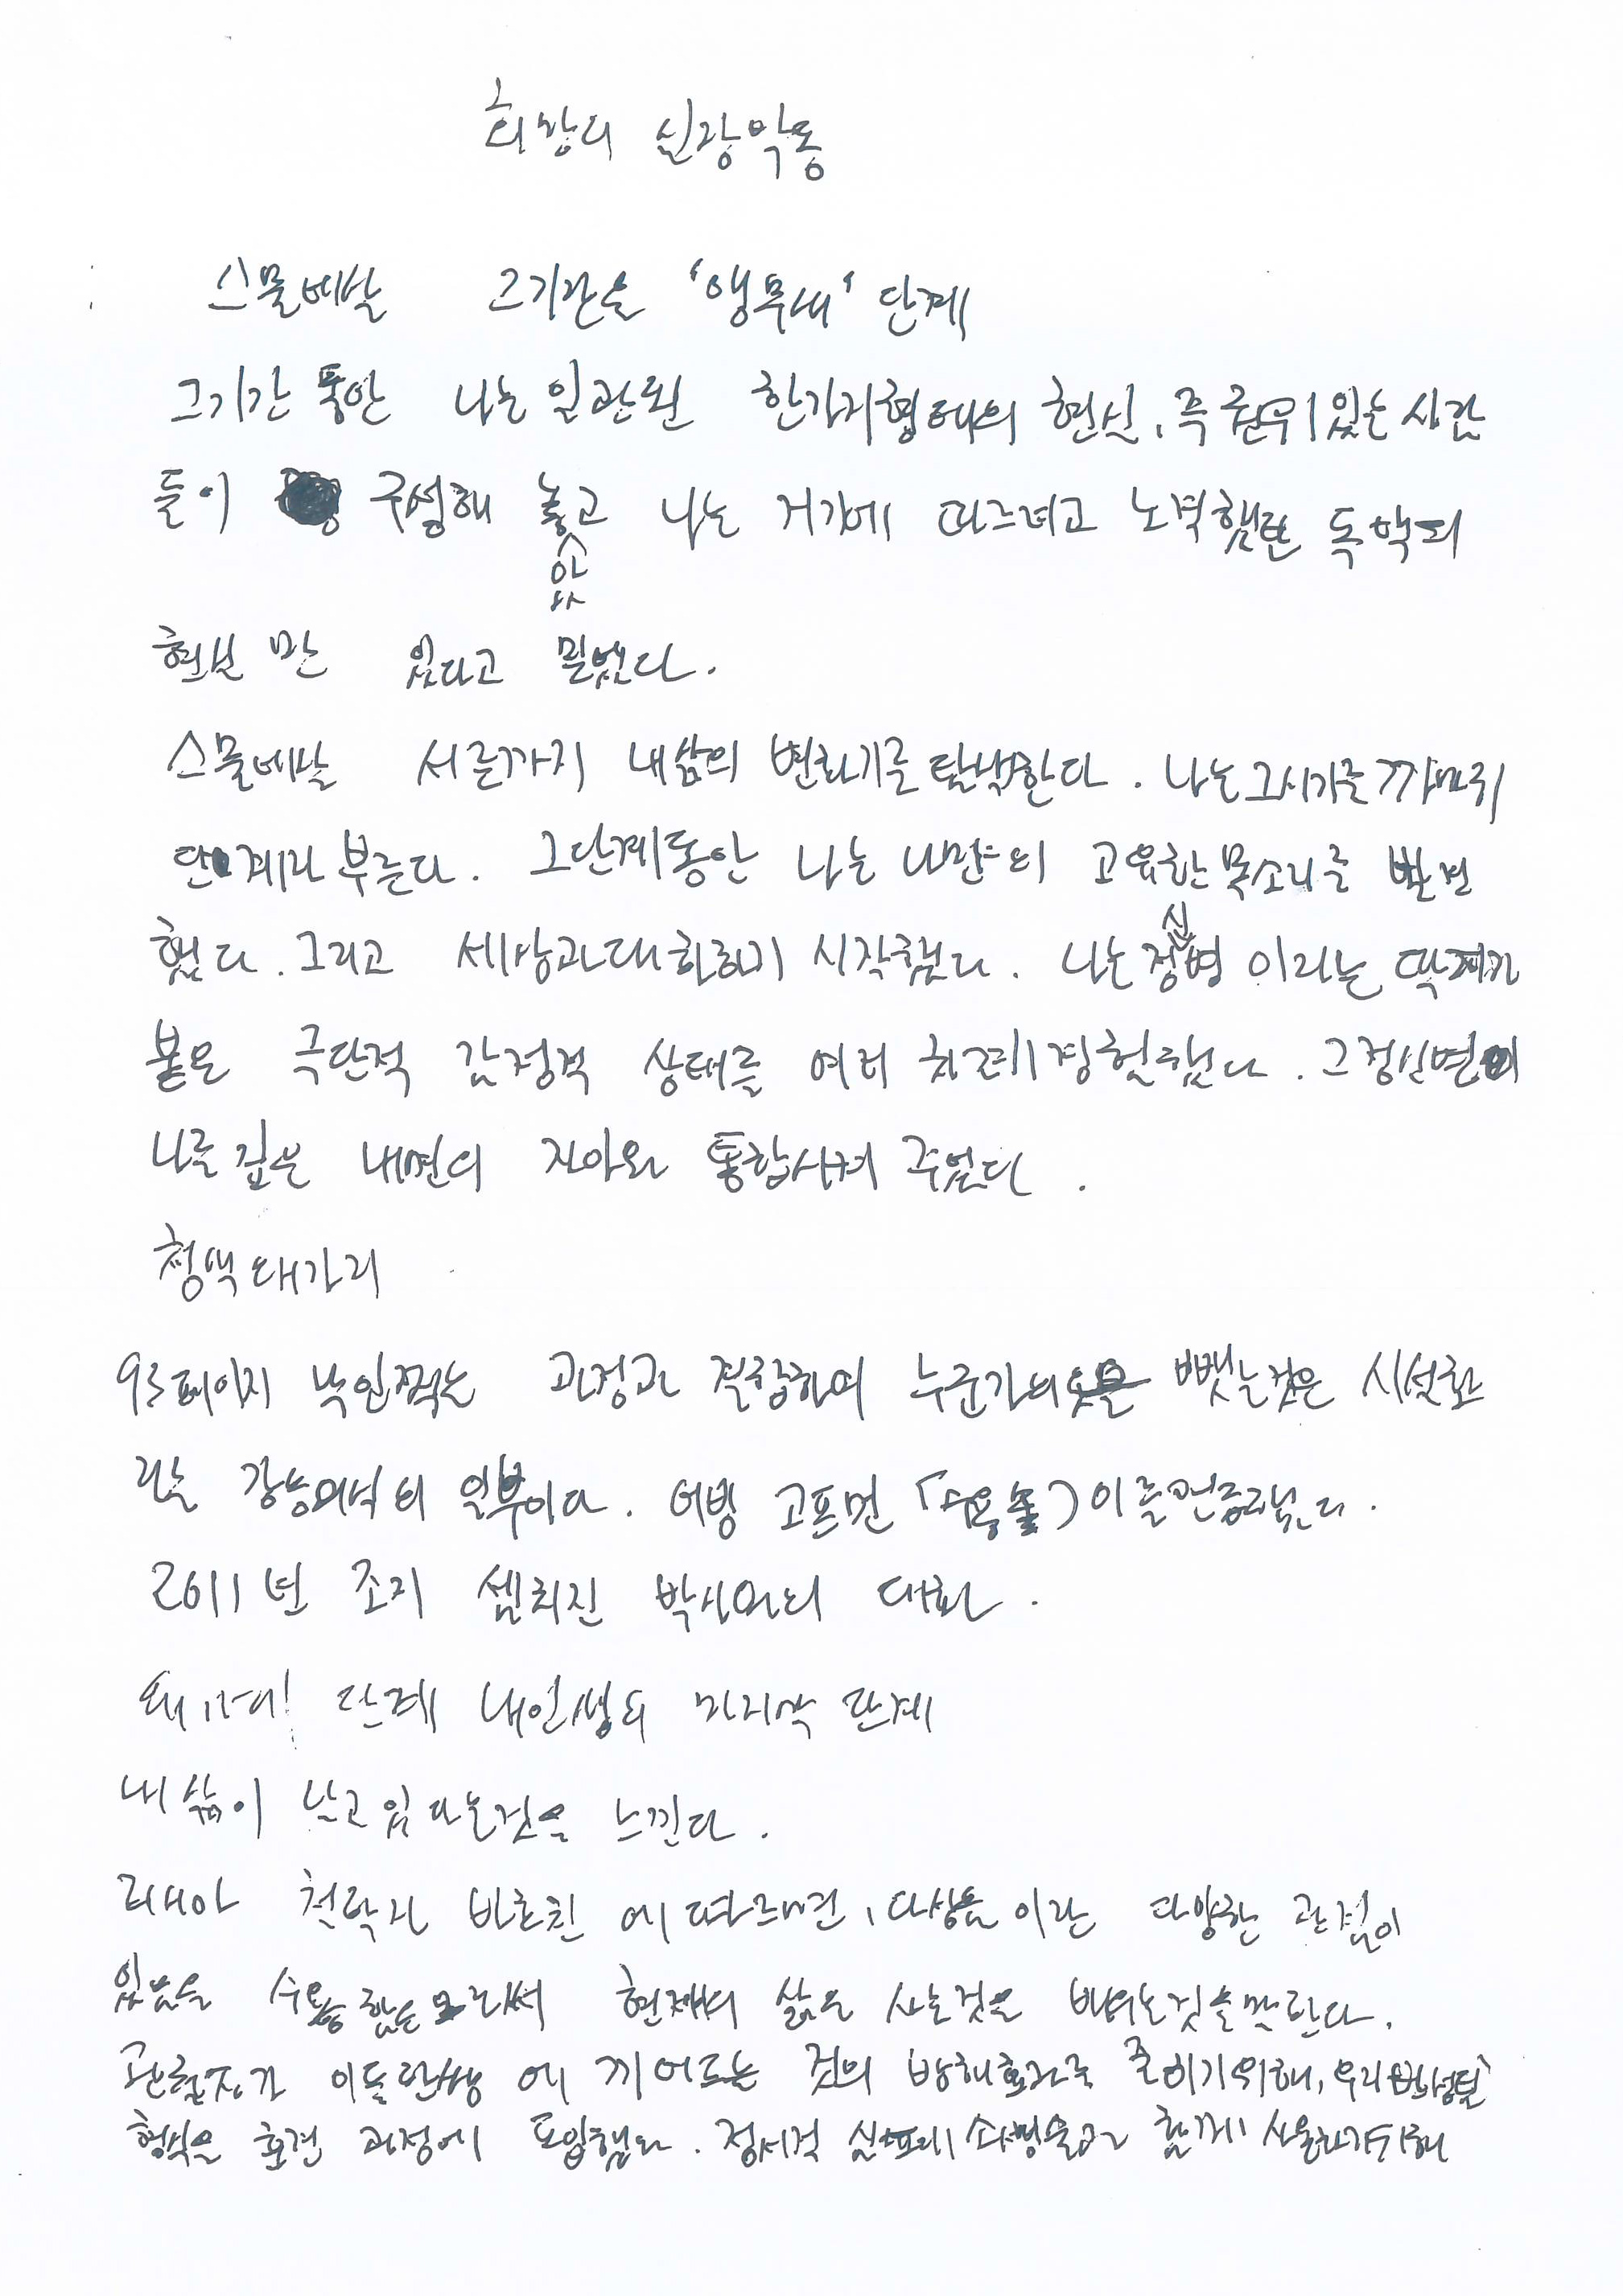 희망의 심장박동
스물네살 그기간을 '앵무새' 단계
그기간 동안 나는 일관된 한가지형태의 현실, 즉 권위있는 사람
들이 구성해 놓고 나는 거기에 따르려고 노력했던 독백의
았
현실 만 있다고 믿었다.
스물네살 서른까지 내삶의 변화기를 탐색한다. 나는그시기를 까마귀
단계라 부른다. 그단계동안 나는 나만의 고유한목소리를 발견
했다. 그리고 세상과대화하기 시작했다. 나는 정신병 이라는 딱지가
붙은 극단적 감정적 상태를 여러 차례 경험했다. 그정신병이
나를 깊은 내면의 자아와 통합시켜 주었다.
청색대가리
93페이지 낙인찍는 과정과 결합하여 누군가의옷을 뺏는것은 시설화
라는 강등의식의 일부이다. 어빙 고프먼 (수용소) 이를
2011년 조지 박사와의 대화.
단계 내인생의 마지막 단계
내 삶이 있다는것을 느낀다.
철학자 바흐친 에 따르면, 다성음 이란 다양한 관점이
있음을 수용함으로써 현재의 삶을 사는것을 배우는것을말한다.
관찰자가 에 끼어드는 것의 방해효과를 줄이기위해, 우리
형식을 회견 과정에 도입했다. 정서적 함께 사용하기위해